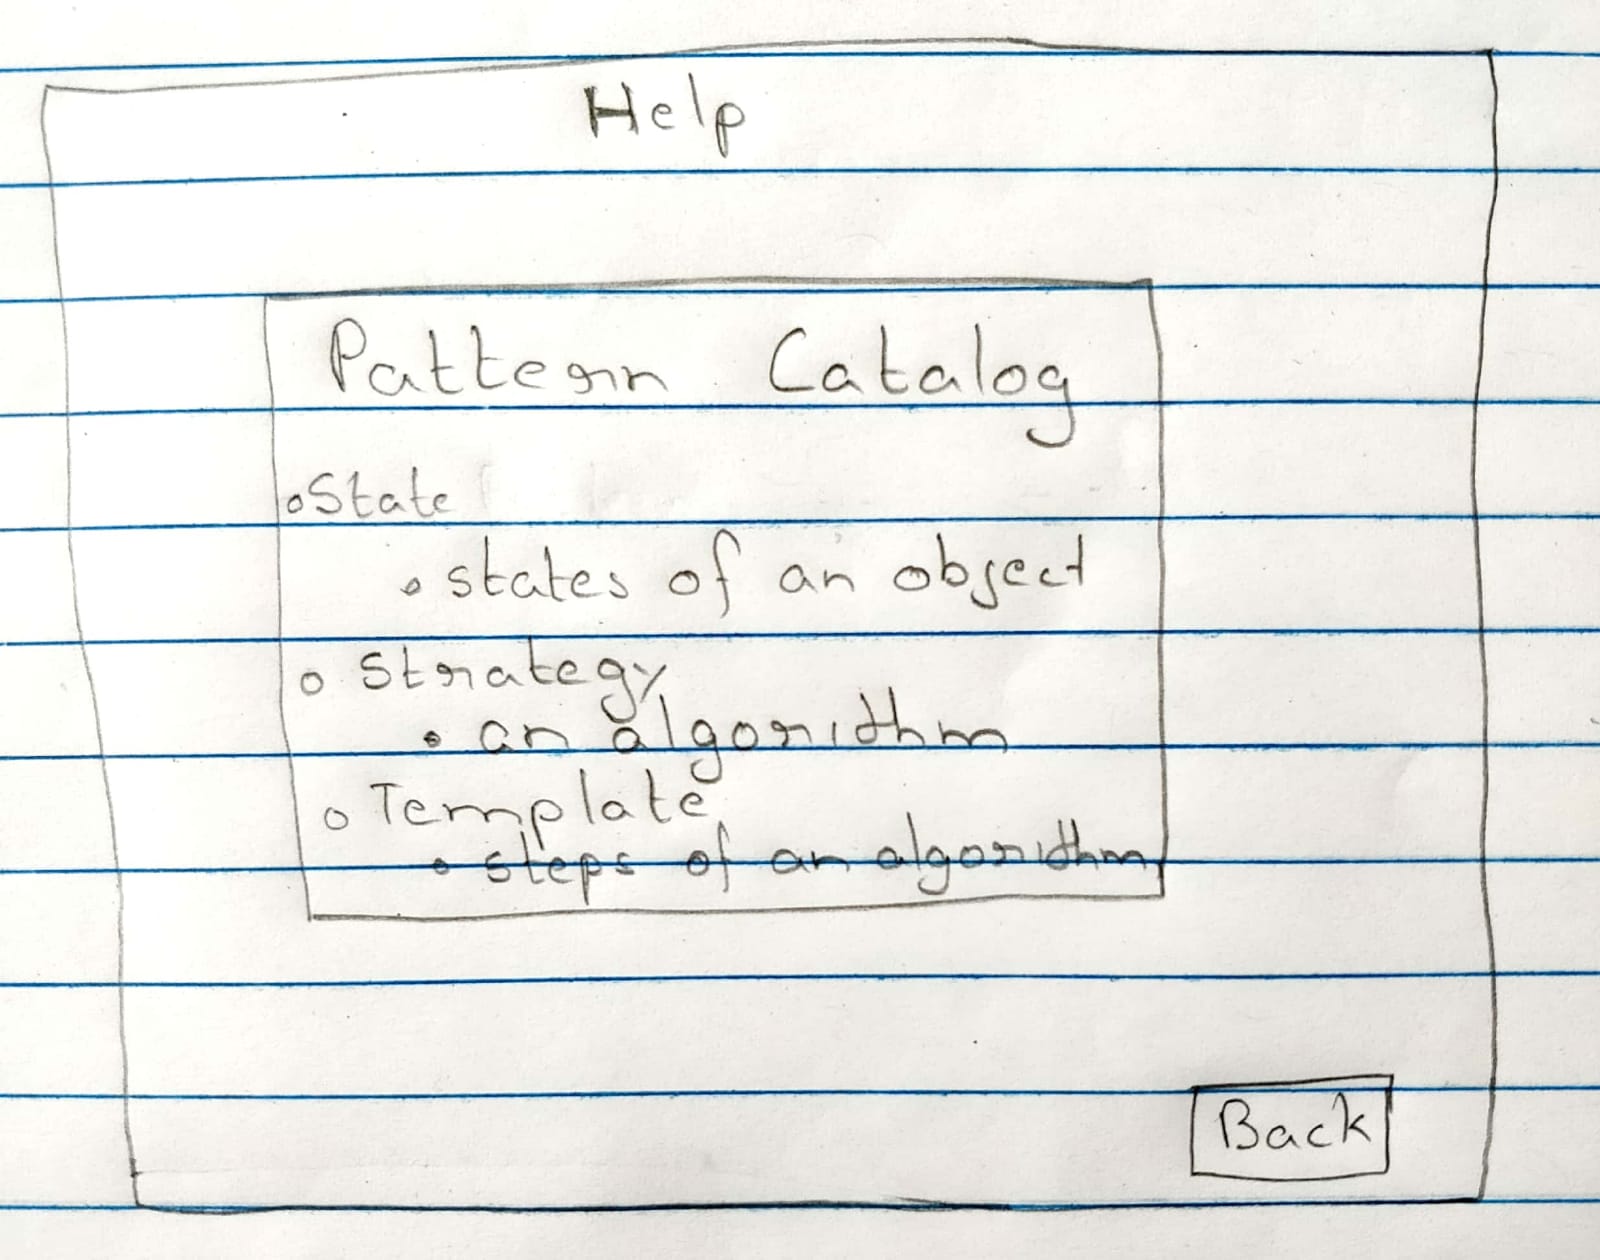 Help
Pattern Catalog
State
states of an object
Strategy
an algorithm
Template
steps of an algorithm
Back